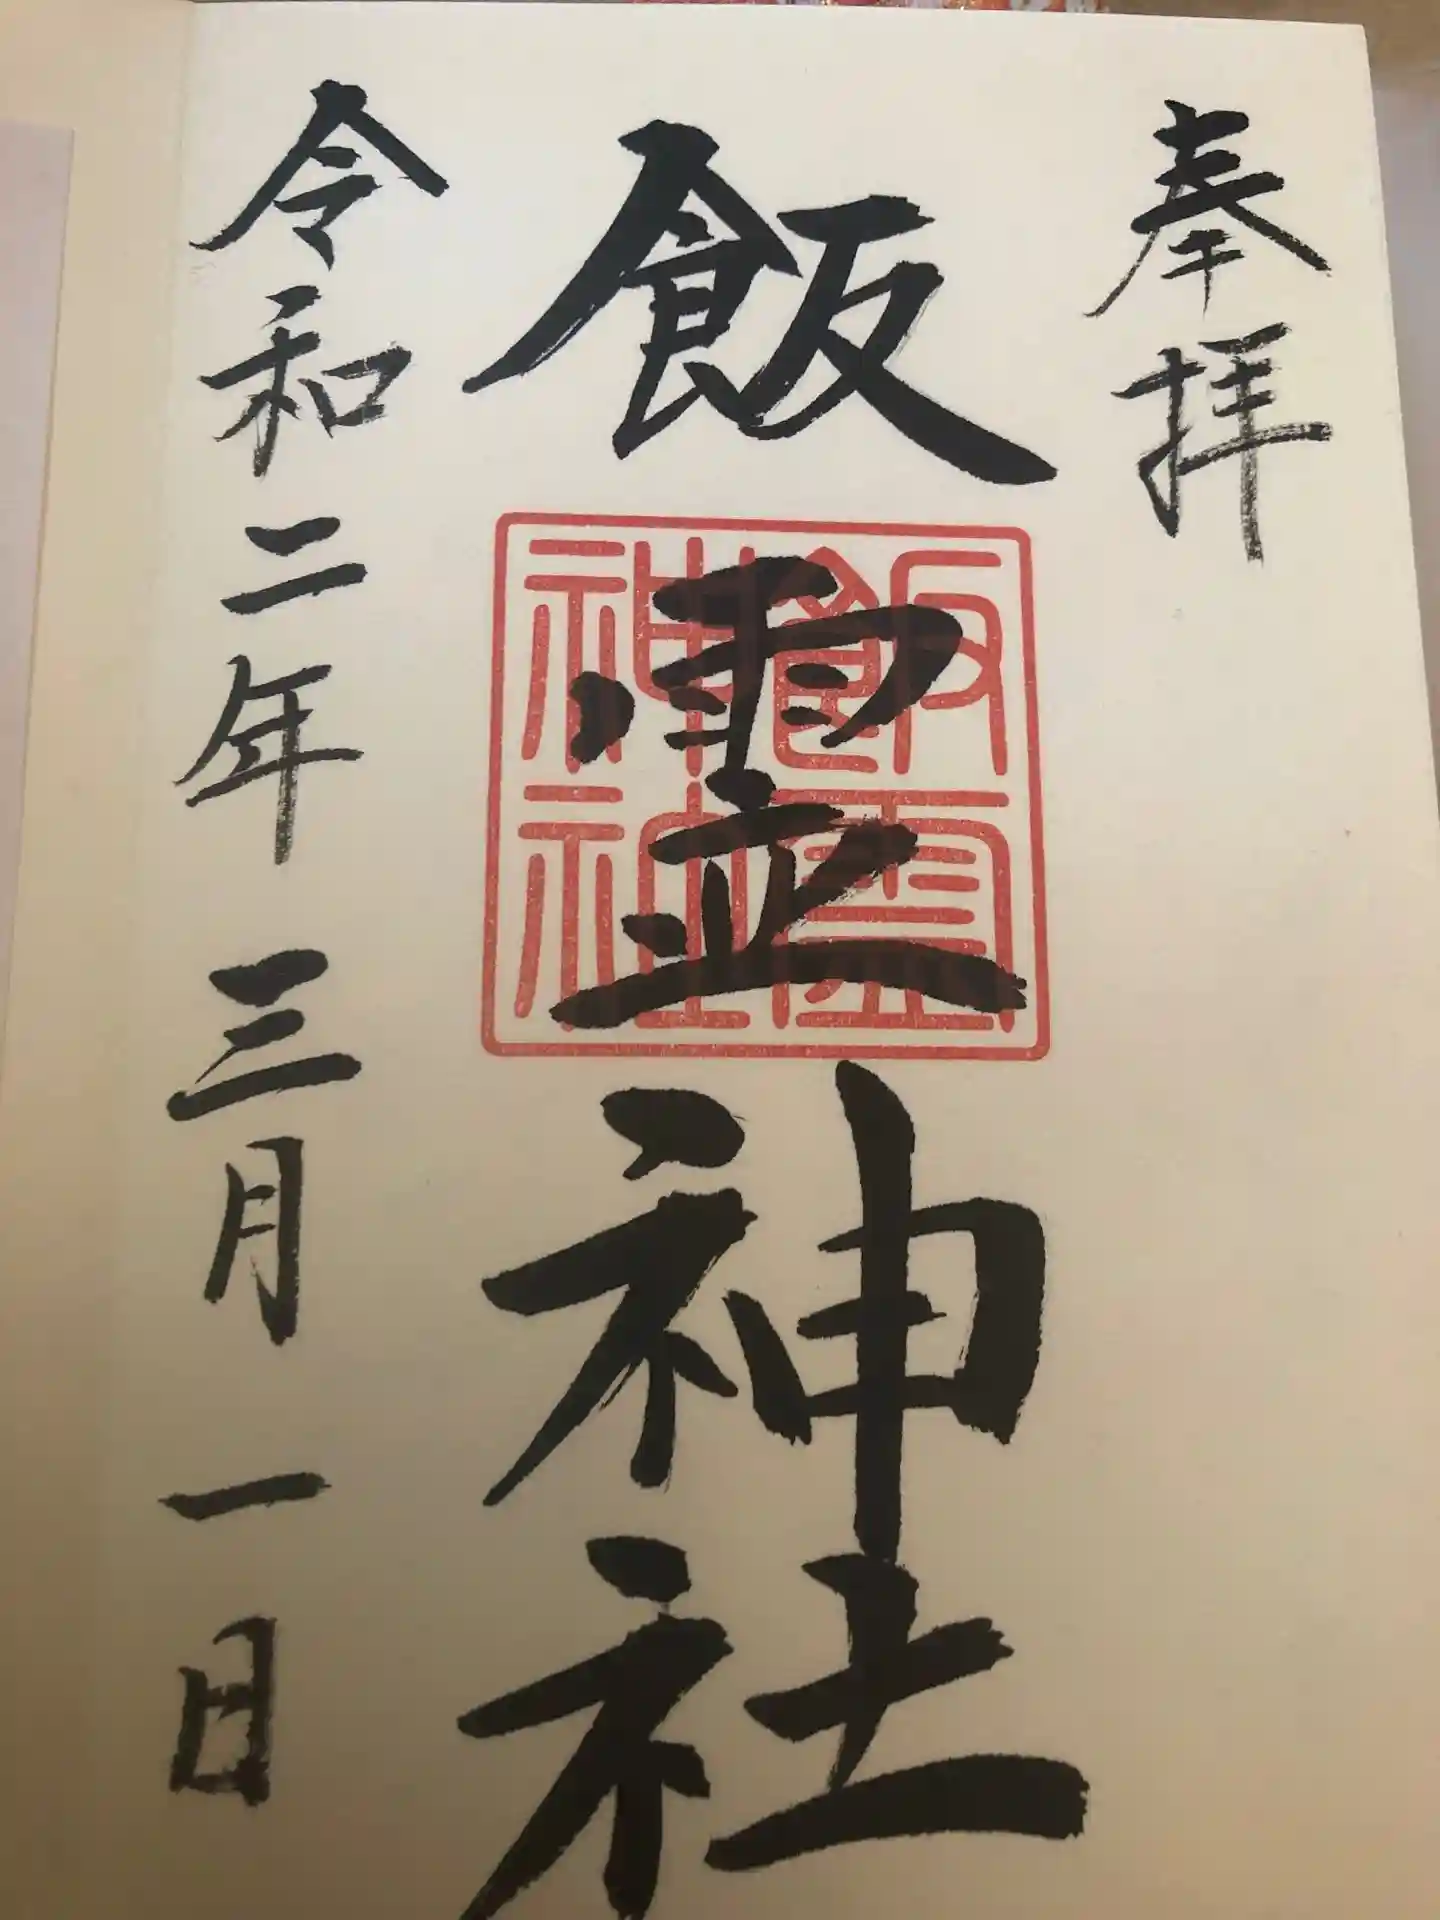 奉拝
飯霊神社
飯霊神社
令和二年三月一日